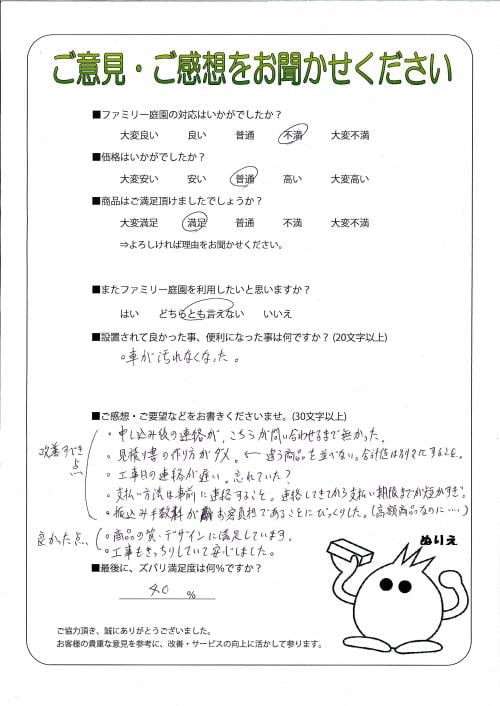 ご意見・ご感想をお聞かせください
■ファミリー庭園の対応はいかがでしたか？
大変良い　良い　普通　不満　大変不満
■価格はいかがでしたか？
大変安い　安い　普通　高い　大変高い
■商品はご満足頂けましたでしょうか？
大変満足　満足　普通　不満　大変不満
⇒よろしければ理由をお聞かせください。
■またファミリー庭園を利用したいと思いますか？
はい　どちらとも言えない　いいえ
■設置されて良かった事、便利になった事は何ですか？(20文字以上)
○車が汚れなくなった。
■ご感想・ご要望などをお書きくださいませ。(30文字以上)
改善すべき点
・申し込み後の連絡が、こちらが問い合わせるまで無かった。
・見積り書の作り方がダメ。← 違う商品を並べない。合計値は別々にすること。
・工事日の連絡が遅い。忘れていた？
・支払い方法は事前に連絡すること。連絡してきてから支払い期限までが短かすぎ。
・振込み手数料がお客負担であることにびっくりした。(高額商品なのに・・・)
良かった点、
・商品の質・デザインに満足しています。
・工事もきっちりしていて安心しました。
■最後に、ズバリ満足度は何%ですか？
40 %
ぬりえ
ご協力頂き、誠にありがとうございました。
お客様の貴重な意見を参考に、改善・サービスの向上に活かして参ります。